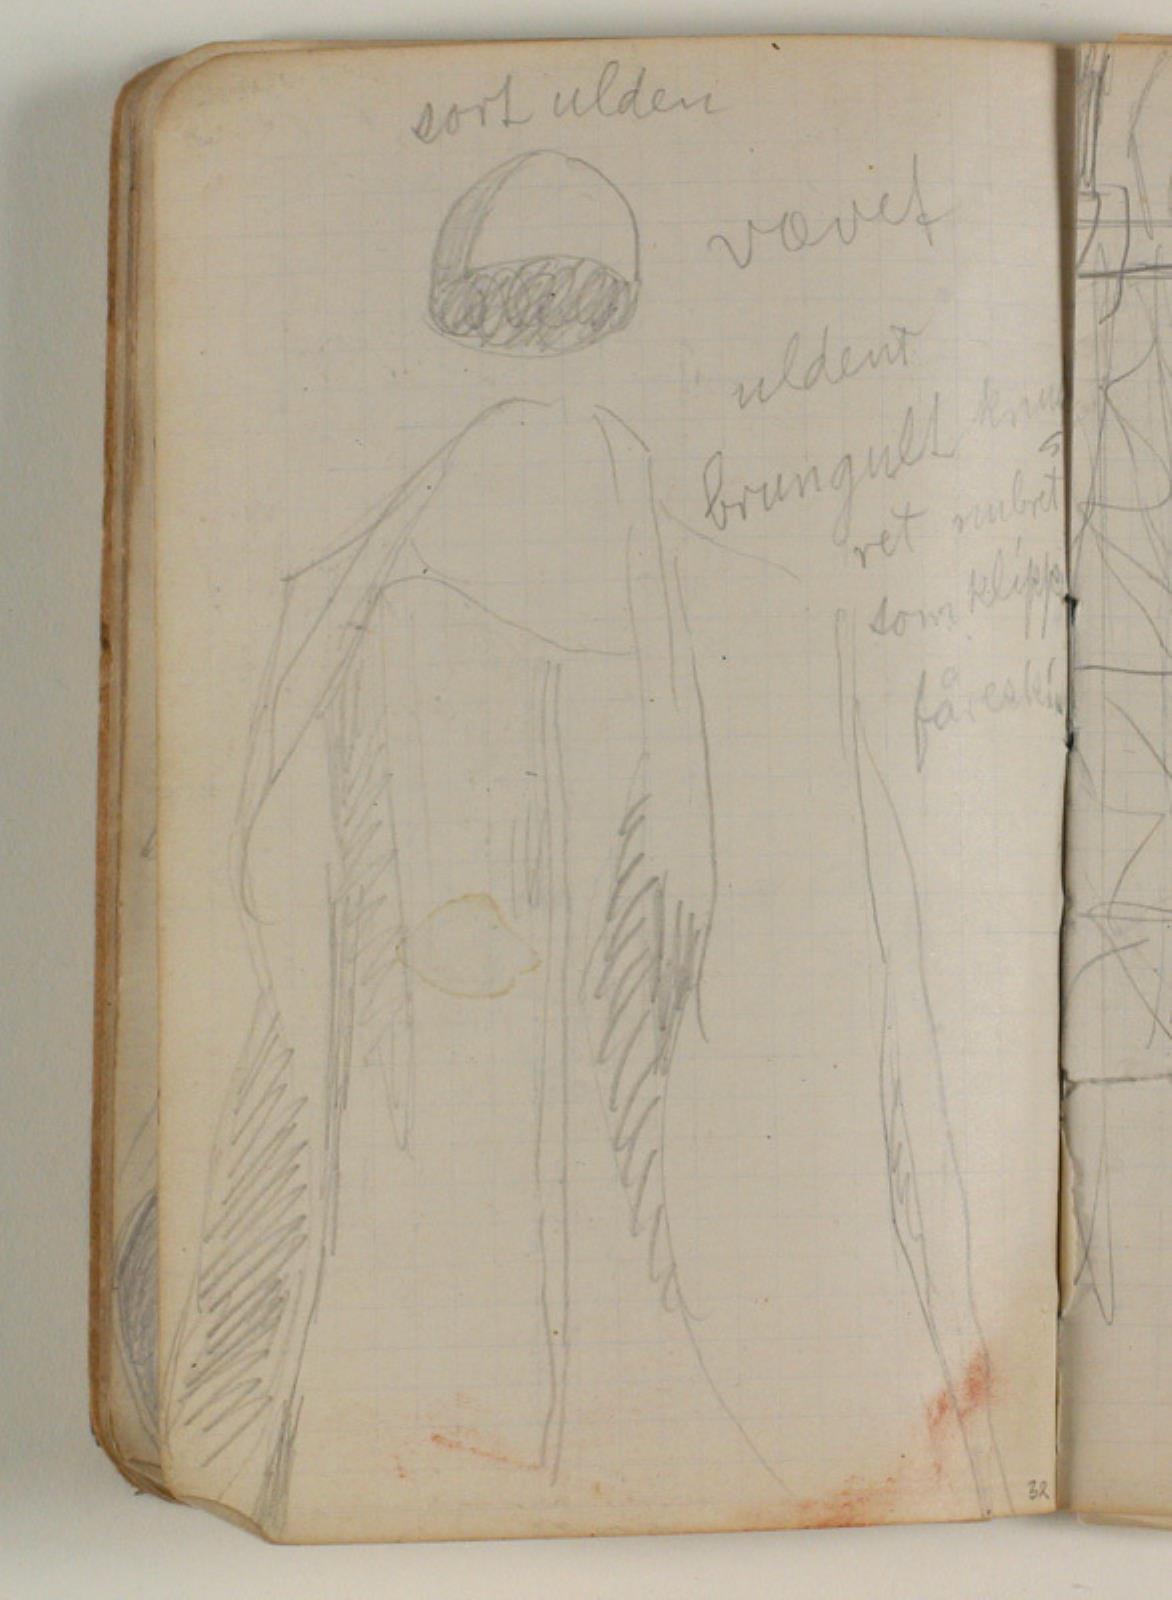 sort ulden
vævet
uldent
brungult
ret
som klipp
fåreskin
32